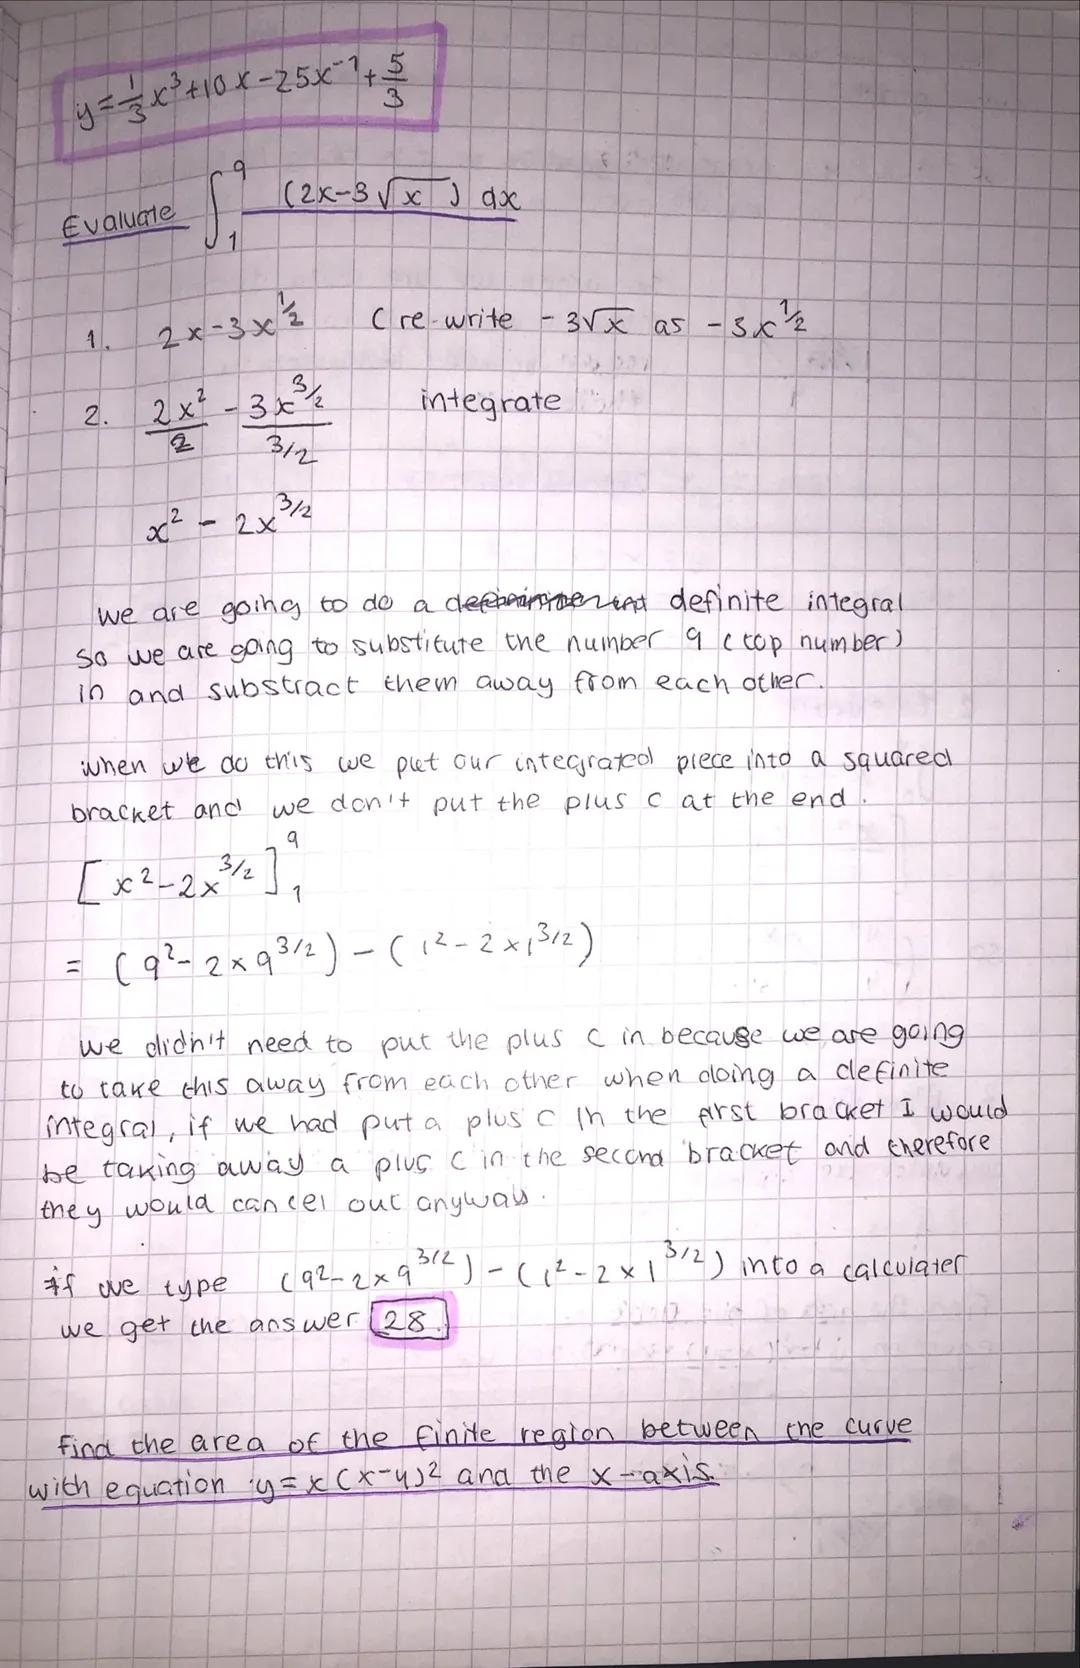 y = 1/3 x³ + 10x - 25x⁻¹ + 5/3
Evaluate ∫₁⁹ (2x - 3√x) dx
1. 2x - 3x^½ (re-write - 3√x as - 3x^½
2. 2x²/2 - 3x^3/2 / 3/2 integrate
x² - 2x^3/2
we are going to do a definite integral
so we are going to substitute the number 9 (top number)
in and substract them away from each other.
when we do this we put our integrated piece into a squared
bracket and we don't put the plus c at the end.
[x² - 2x^3/2]₁⁹
= (9² - 2 × 9^3/2) - (1² - 2 × 1^3/2)
we didn't need to put the plus c in because we are going
to take this away from each other when doing a definite
integral, if we had put a plus c in the first bracket I would
be taking away a plus c in the second bracket and therefore
they would cancel out anyways.
if we type (9² - 2 × 9^3/2) - (1² - 2 × 1^3/2) into a calculater
we get the answer 28.
find the area of the finite region between the curve
with equation y = x(x-4)² and the x-axis.